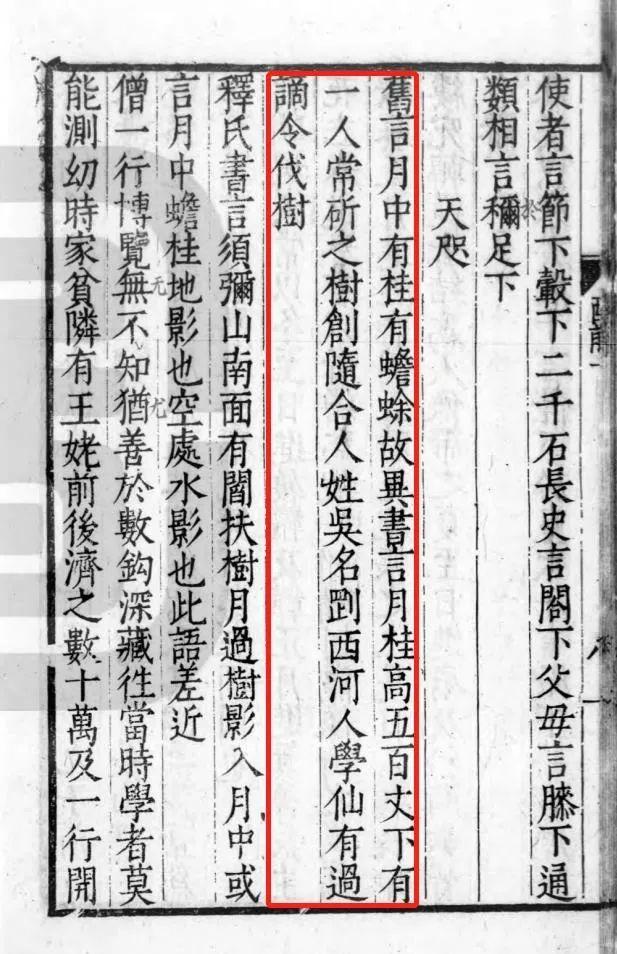 使者言節下轂下二千石長史言閤下父毋言膝下通
類相言稱於足下
天咫
舊言月中有桂有蟾蜍故異書言月桂高五百丈下有
一人常斫之樹創隨合人姓吳名剛西河人學仙有過
謫令伐樹
釋氏書言須彌山南面有閻扶樹月過樹影入月中或
言月中蟾桂地影也空處水影也此語差近
僧一行博覽無无不知猶尤善於數鈎深藏徃當時學者莫
能測幼時家貧隣有王姥前後濟之數十萬及一行開